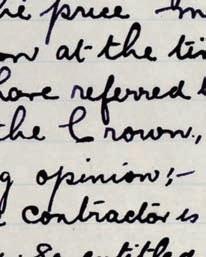 price
on at the
have referred
the Crown,
opinion:-
contractor is
entitled